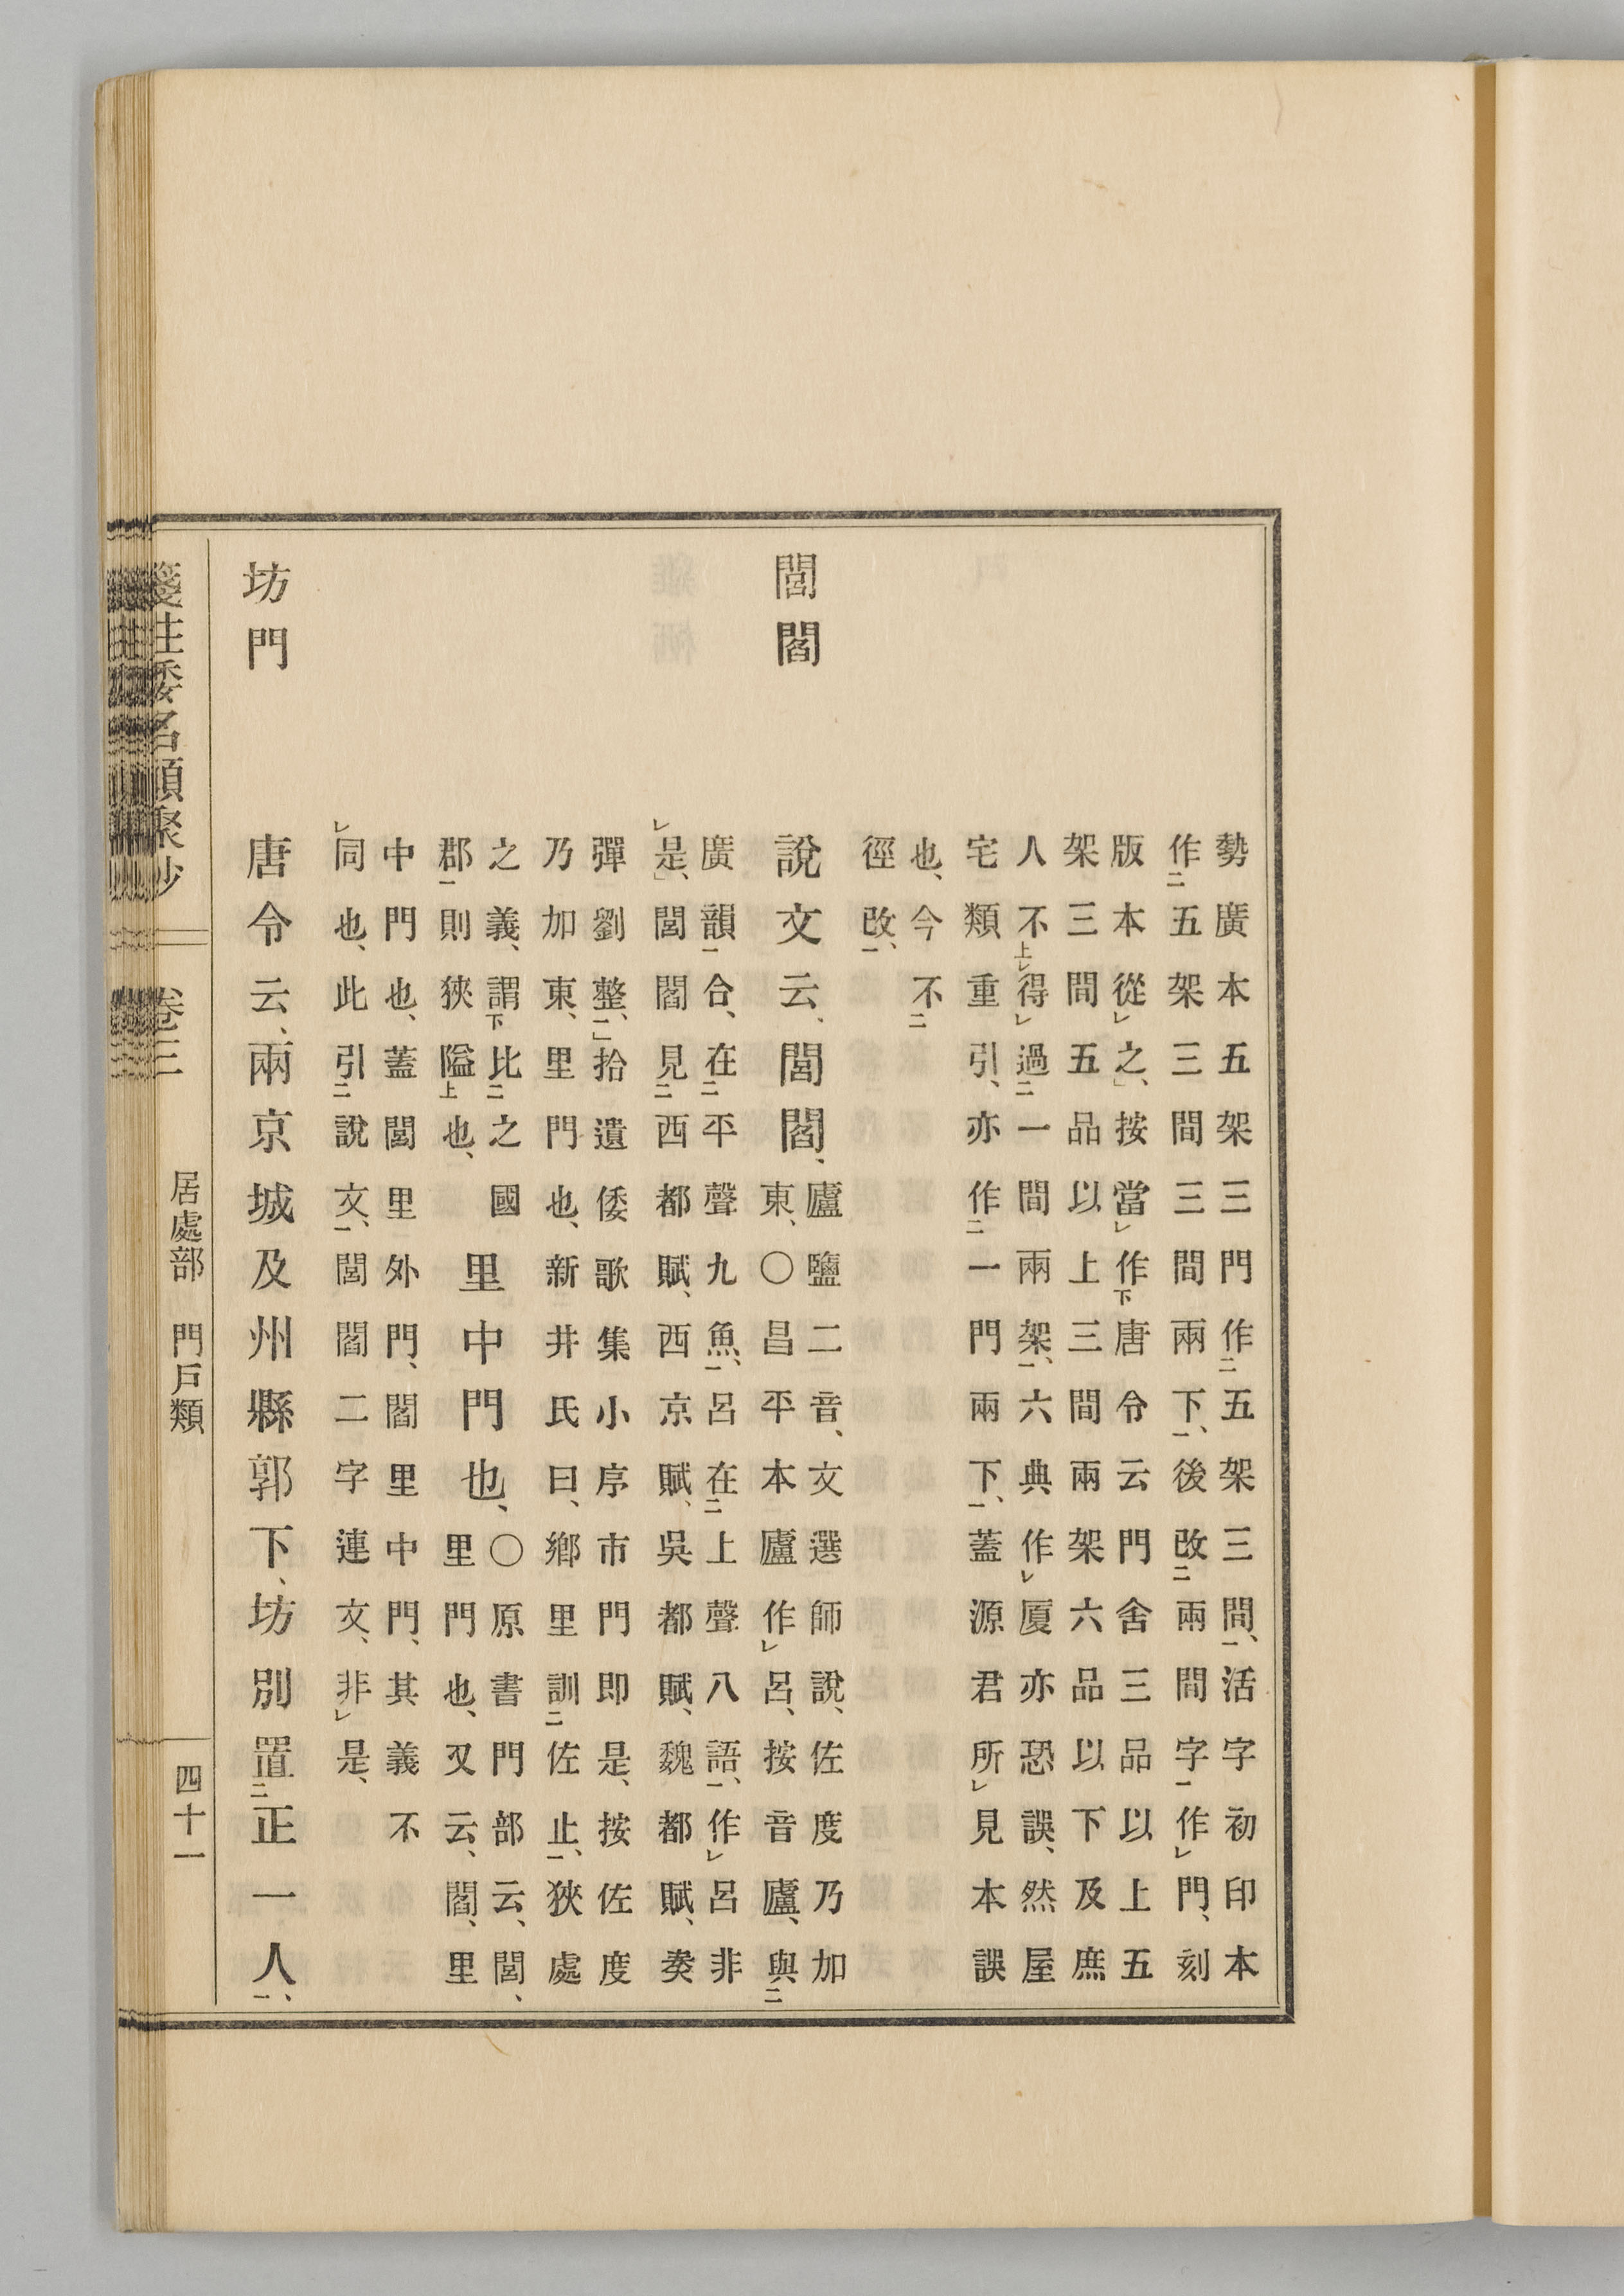 勢廣本五架三門作㆓五架三間㆒、活字初印本
作㆓五架三間三間兩下㆒、後改㆓兩間字㆒作㆑門、刻
版本從㆑之、」按當㆑作㆘唐令云門舍三品以上五
架三間五品以上三間兩架六品以下及庶
人不㆖㆑得㆑過㆓一間兩架㆒、六典作㆑厦亦恐誤、然屋
宅類重引、亦作㆓一門兩下㆒、蓋源君所㆑見本誤
也、今不㆓
徑改㆒、
閭閻
說文云、閭閻、
廬鹽二音、文選師說、佐度乃加
東、〇昌平本廬作㆑呂、按音廬、與㆓
廣韻㆒合、在㆓平聲九魚㆒、呂在㆓上聲八語㆒、作㆑呂非
㆑是、」閭閻見㆓西都賦、西京賦、吳都賦、魏都賦、奏
彈劉整㆒、」拾遺倭歌集小序市門即是、按佐度
乃加東、里門也、新井氏曰、鄕里訓㆓佐止㆒、狹處
之義、謂㆘比㆓之國
郡㆒則狹隘㆖也、
里中門也、
〇原書門部云、閭、
里門也、又云、閻、里
中門也、蓋閭里外門、閻里中門、其義不
㆑同也、此引㆓說文㆒、閭閻二字連文、非㆑是、
坊門
唐令云、兩京城及州縣郭下、坊別置㆓正一人㆒、
箋注倭名類聚抄 卷三 居處部 門戶類 四十一